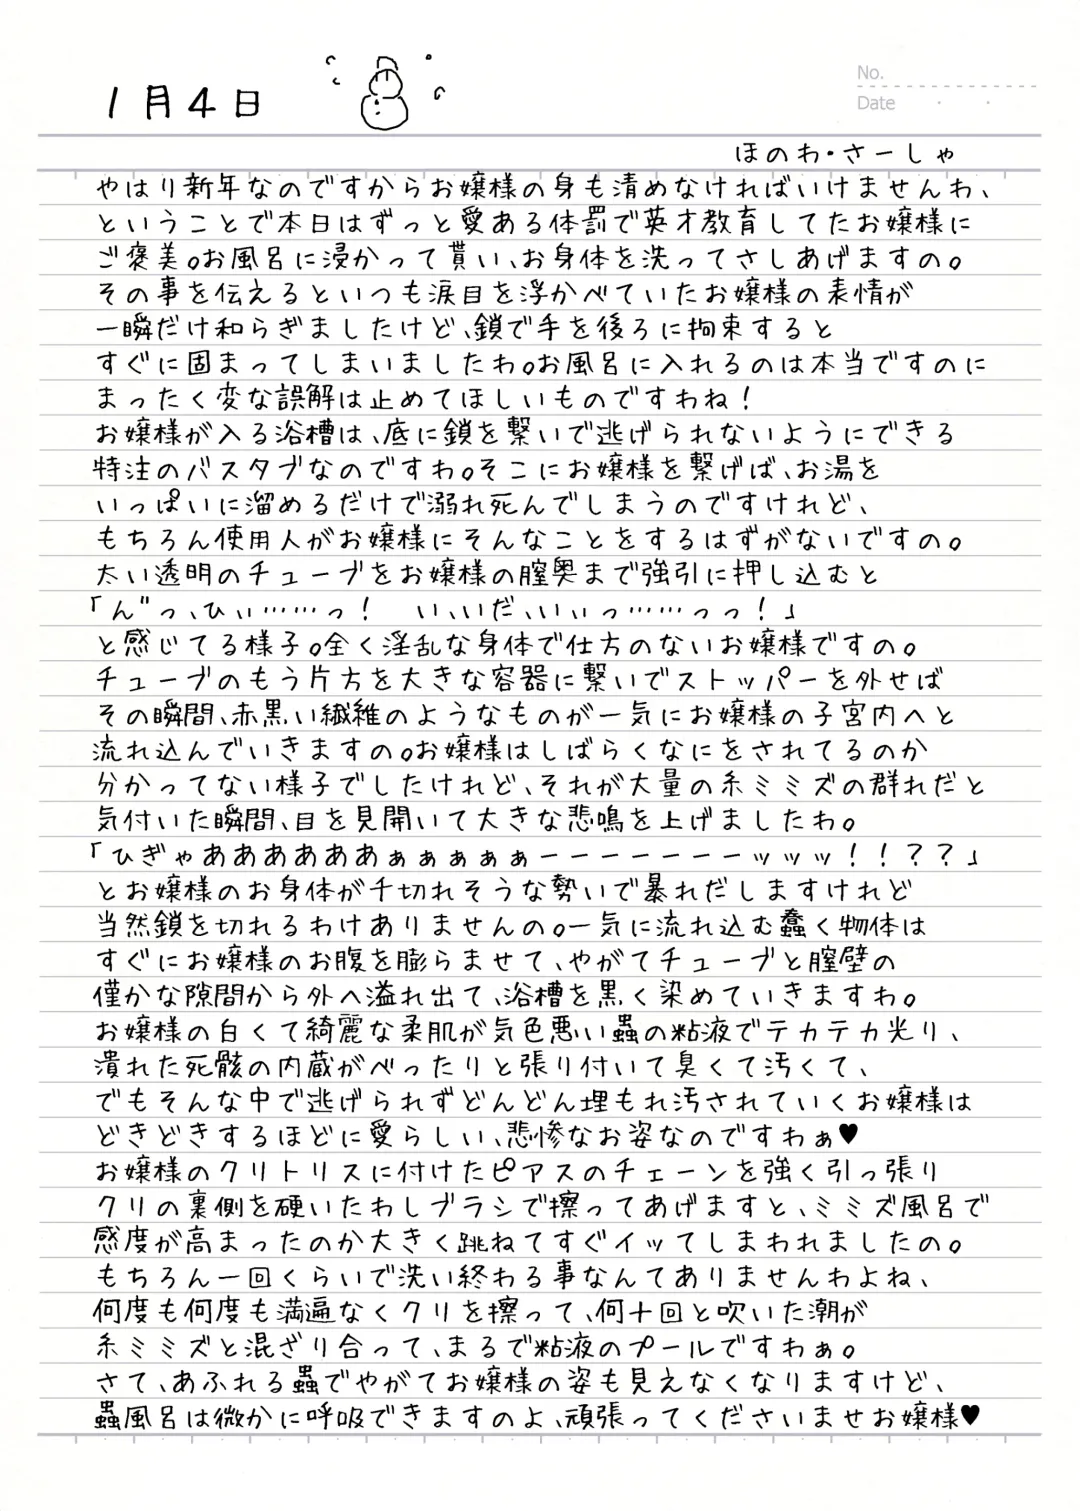 1月4日
No.
Date
ほのわ・さーしゃ
やはり新年なのですからお嬢様の身も清めなければいけませんわ、
ということで本日はずっと愛ある体罰で英才教育してたお嬢様に
ご褒美。お風呂に浸かって貰い、お身体を洗ってさしあげますの。
その事を伝えるといつも涙目を浮かべていたお嬢様の表情が
一瞬だけ和らぎましたけど、鎖で手を後ろに拘束すると
すぐに固まってしまいましたわ。お風呂に入れるのは本当ですのに
まったく変な誤解は止めてほしいものですわね！
お嬢様が入る浴槽は、底に鎖を繋いで逃げられないようにできる
特注のバスタブなのですわ。そこにお嬢様を繋げば、お湯を
いっぱいに溜めるだけで溺れ死んでしまうのですけれど、
もちろん使用人がお嬢様にそんなことをするはずがないですの。
太い透明のチューブをお嬢様の膣奥まで強引に押し込むと
「ん゛っ、ひぃ……っ！　い、いだ、いぃっ……っっ！」
と感じてる様子。全く淫乱な身体で仕方のないお嬢様ですの。
チューブのもう片方を大きな容器に繋いでストッパーを外せば
その瞬間、赤黒い繊維のようなものが一気にお嬢様の子宮内へと
流れ込んでいきますの。お嬢様はしばらくなにをされてるのか
分かってない様子でしたけれど、それが大量の糸ミミズの群れだと
気付いた瞬間、目を見開いて大きな悲鳴を上げましたわ。
「ひぎゃああああああぁぁぁぁぁーーーーーーーッッッ！！？？」
とお嬢様のお身体が千切れそうな勢いで暴れだしますけれど
当然鎖を切れるわけありませんの。一気に流れ込む蠢く物体は
すぐにお嬢様のお腹を膨らませて、やがてチューブと膣壁の
僅かな隙間から外へ溢れ出て、浴槽を黒く染めていきますわ。
お嬢様の白くて綺麗な柔肌が気色悪い蟲の粘液でテカテカ光り、
潰れた死骸の内蔵がべったりと張り付いて臭くて汚くて、
でもそんな中で逃げられずどんどん埋もれ汚されていくお嬢様は
どきどきするほどに愛らしい、悲惨なお姿なのですわぁ♥
お嬢様のクリトリスに付けたピアスのチェーンを強く引っ張り
クリの裏側を硬いたわしブラシで擦ってあげますと、ミミズ風呂で
感度が高まったのか大きく跳ねてすぐイッてしまわれましたの。
もちろん一回くらいで洗い終わる事なんてありませんわよね、
何度も何度も満遍なくクリを擦って、何十回と吹いた潮が
糸ミミズと混ざり合って、まるで粘液のプールですわぁ。
さて、あふれる蟲でやがてお嬢様の姿も見えなくなりますけど、
蟲風呂は微かに呼吸できますのよ、頑張ってくださいませお嬢様♥